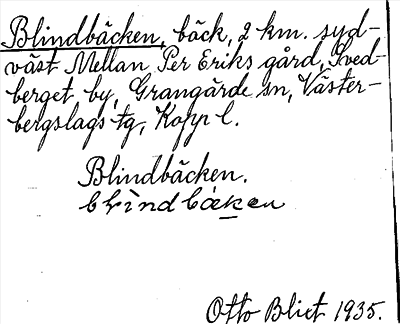 Blindbäcken, bäck, 2 km. syd-
väst Mellan Per Eriks gård, Sved-
berget by, Grangärde sn, Väster-
bergslags tg, Kopp l.
Blindbäcken.
Otto Blixt 1935.